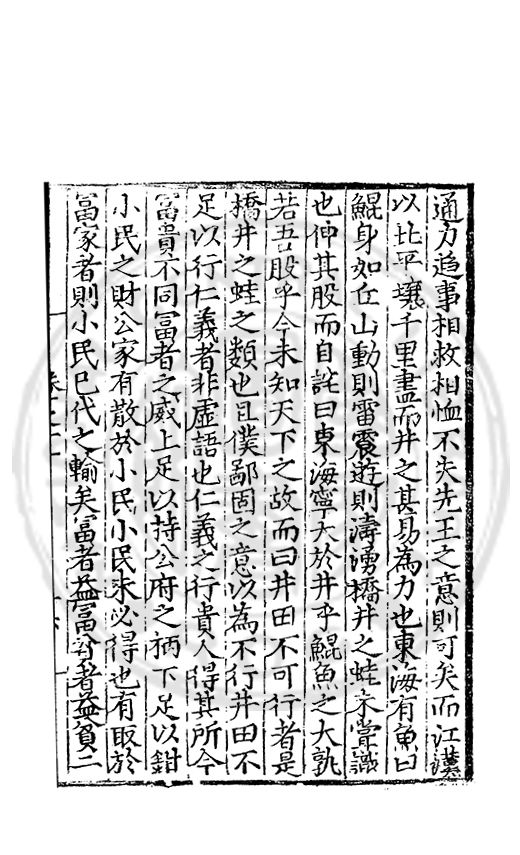 通力趍事相救相恤不失先王之意則可矣而江漢
以北平壤千里盡而井之甚易為力也東海有魚曰
鯤身如丘山動則雷震遊則濤湧橋井之蛙未嘗識
也伸其股而自詫曰東海寧大於井乎鯤魚之大孰
若吾股乎今未知天下之故而曰井田不可行者是
橋井之蛙之類也且僕鄙固之意以為不行井田不
足以行仁義者非虛語也仁義之行貴人得其所今
富貴不同富者之威上足以持公府之柄下足以鉗
小民之財公家有散於小民小民未必得也有取於
富家者則小民已代之輸矣富者益富貧者益貧二